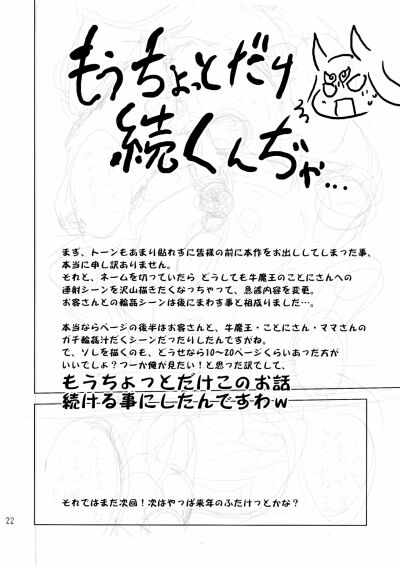 もうちょっとだけ
続くんぢゃ…
まず、トーンもあまり貼れずに皆様の前に本作をお出ししてしまった事、
本当に申し訳ありません。
それと、ネームを切っていたら どうしても牛魔王のことにさんへの
連射シーンを沢山描きたくなっちゃって、急遽内容を変更。
お客さんとの輪姦シーンは後にまわす事と相成りました…。
本当ならページの後半はお客さんと、牛魔王・ことにさん・ママさんの
ガチ輪姦汁だくシーンだったりしたんですがね。
で、ソレを描くのも、どうせなら10～20ページくらいあった方が
いいでしょ？つーか俺が見たい！と思った訳でして、
もうちょっとだけこのお話
続ける事にしたんですわｗ
それではまだ次回！次はやっぱ来年のふたけっとかな？
22